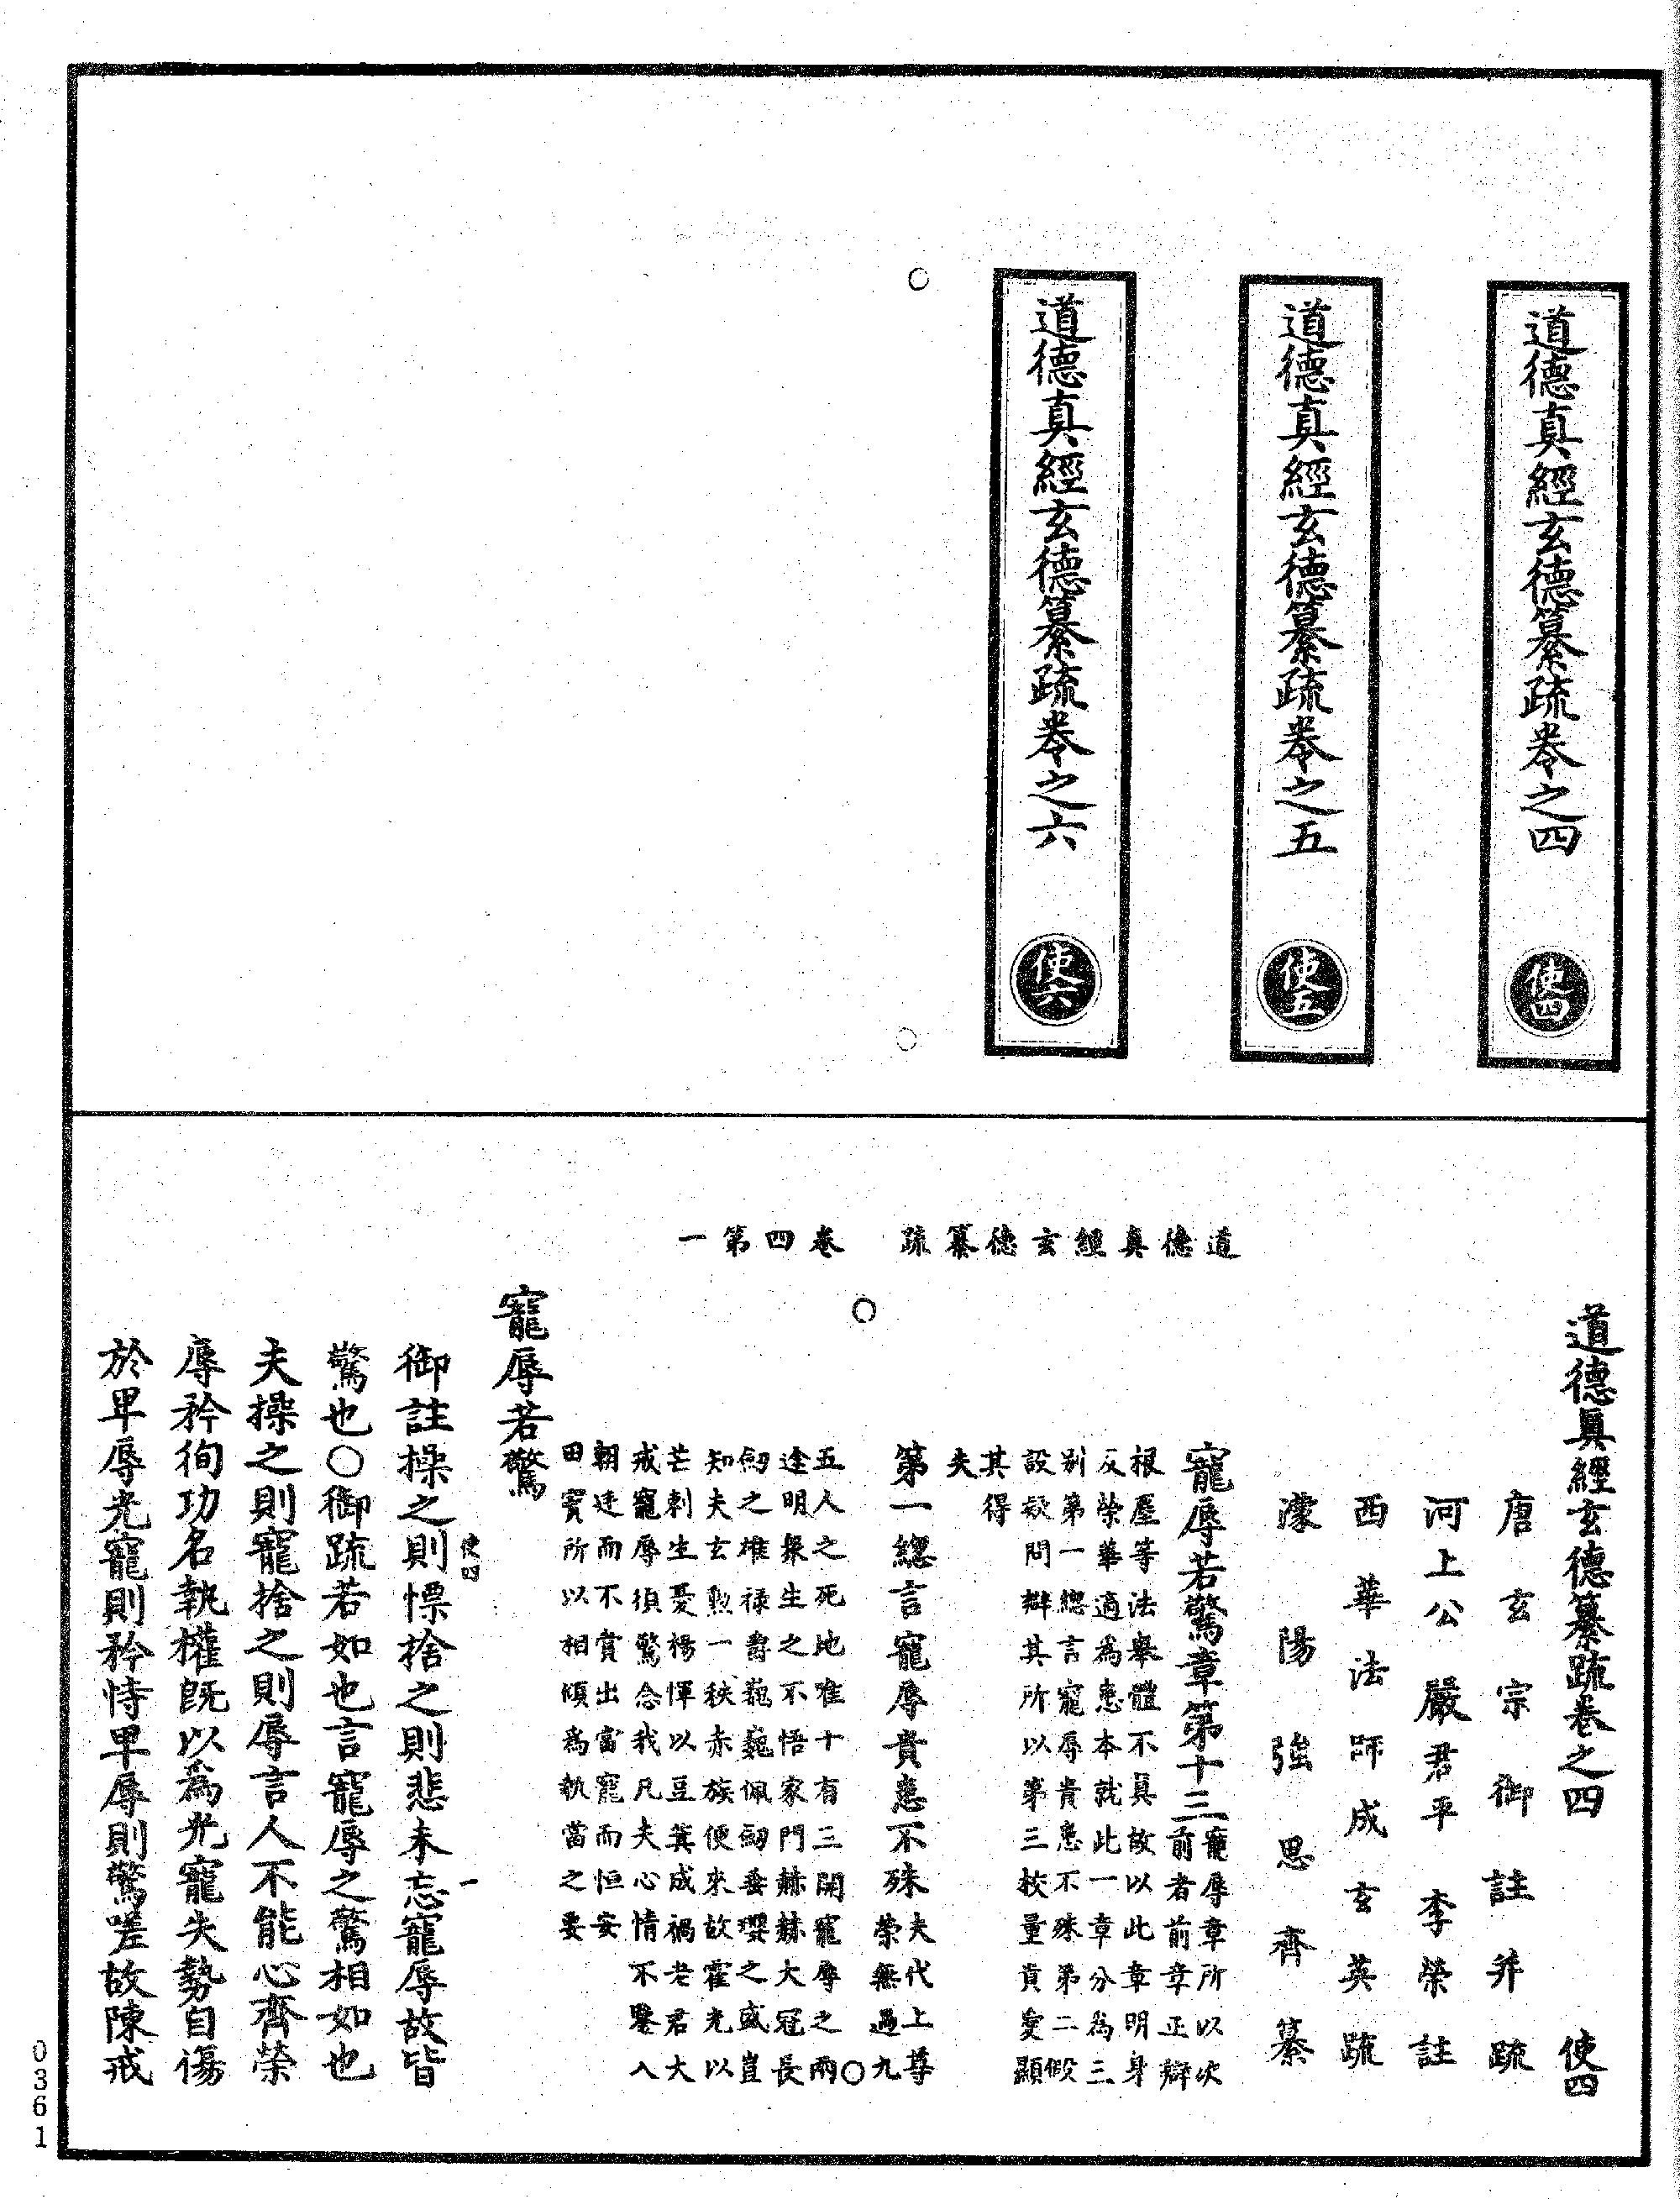 道德真經玄德纂疏卷之四
使四
道德真經玄德纂疏卷之五
使五
道德真經玄德纂疏卷之六
使六
道德真經玄德纂疏　卷四第一
道德真經玄德纂疏卷之四　使四
唐玄宗御註并疏
河上公嚴君平李榮註
西華法師成玄英疏
濛陽強思齊纂
寵辱若驚章第十三
寵辱章所以次
前者前章正辯
根屋等法舉體不真故以此章明身
及榮華適為患本就此一章分為三
別第一總言寵辱貴患不殊第二假
設疑問辯其所以第三校量貴愛顯
其得
夫
第一總言寵辱貴患不殊
夫代上尊
榮無過九
五人之死地唯十有三開寵辱之兩
途明眾生之不悟家門赫赫大冠長
劒之雄祿爵巍巍佩劒垂瓔之盛豈
知夫玄勲一秩赤族便來故霍光以
芒刺生憂楊惲以豆萁成禍老君大
戒寵辱須驚念我凡夫心情不鑒入
朝廷而不賞出當寵而恒安
田竇所以相傾為執當之要
寵辱若驚
御註操之則慄捨之則悲未忘寵辱故皆
使四　一
驚也○御疏若如也言寵辱之驚相如也
夫操之則寵捨之則辱言人不能心齊榮
辱矜徇功名執權既以為光寵失勢自傷
於卑辱光寵則矜恃卑辱則驚嗟故陳戒
0361